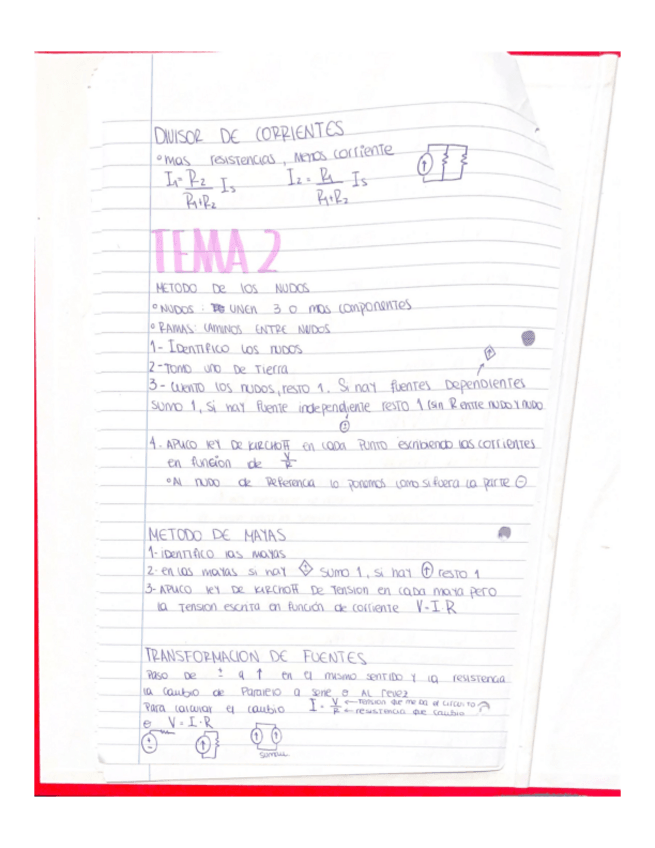 DIVISOR DE CORRIENTES
° mas resistencias, menos corriente
I₁ = R₂ / R₁+R₂ Is I₂ = R₁ / R₁+R₂ Is
TEMA 2
METODO DE LOS NUDOS
° NUDOS: UNEN 3 O mas componentes
° RAMAS: CAMINOS ENTRE NUDOS
1- IDENTIFICO LOS nudos
2- TOMO UNO DE TIERRA
3- CUENTO LOS NUDOS, resto 1. Si hay fuentes DEPENDIENTES
sumo 1, si hay fuente independiente resto 1 (sin R entre nudo y nudo
4. APLICO LEY DE KIRCHOFF en cada PUNTO escribiendo las corrientes
en función de V/R
° AL nudo de Referencia lo ponemos como si fuera la parte ⊖
METODO DE MAYAS
1- identifico las mayas
2- en las mayas si hay sumo 1, si hay resto 1
3- APLICO LEY DE KIRCHOFF DE Tension en cada maya pero
la Tension escrita en función de corriente V=I·R
TRANSFORMACION DE FUENTES
Paso de ± a ↑ en el mismo sentido y la resistencia
la cambio de Paralelo a serie o AL revez
Para calcular el cambio I = V/R ← Tension que me da el circuito
← resistencia que cambio
e V = I·R
sumar